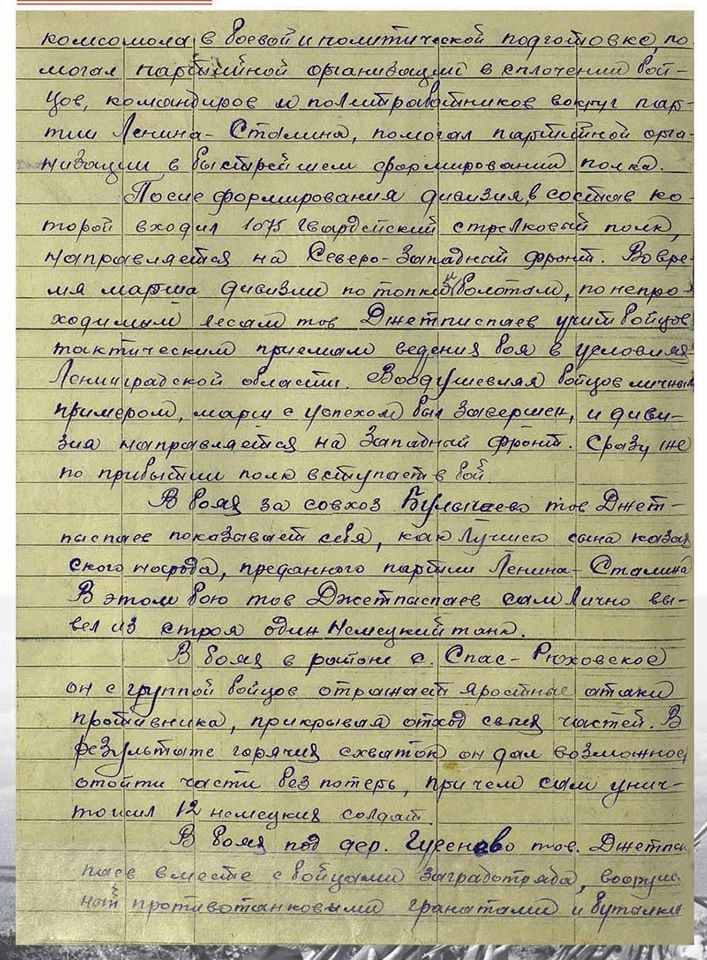 комсомола в боевой и политической подготовке, по-
могал партийной организации в сплочении бой-
цов, командиров и политработников вокруг пар-
тии Ленина-Сталина, помогал партийной орга-
низации в быстрейшем сформировании полка.
После формирования дивизия, в состав ко-
торой входил 1075 гвардейский стрелковый полк,
направляется на Северо-Западный фронт. Во вре-
мя марша дивизии по топким болотам, по непро-
ходимым лесам тов Джетписпаев учит бойцов
тактическим приемам ведения боя в условиях
Ленинградской области. Воодушевляя бойцов личным
примером, марш с успехом был завершен, и диви-
зия направляется на Западный фронт. Сразу же
по прибытии полк вступает в бой
В боях за совхоз Булычево тов Джет-
паспаев показывает себя, как лучшего сына казах
ского народа, преданного партии Ленина-Сталина
В этом бою тов Джетпаспаев сам лично вы-
вел из строя один немецкий танк.
В боях в районе с. Спас-Рюховское
он с группой бойцов отражает яростные атаки
противника, прикрывая отход своих частей. В
результате горячих схваток он дал возможнос
отойти части без потерь, причем сам унич-
тожил 12 немецких солдат.
В боях под дер. Гусеново тов. Джетпас
паев вместе с бойцами заградотряда, вооруже
ный противотанковыми гранатами и бутылки